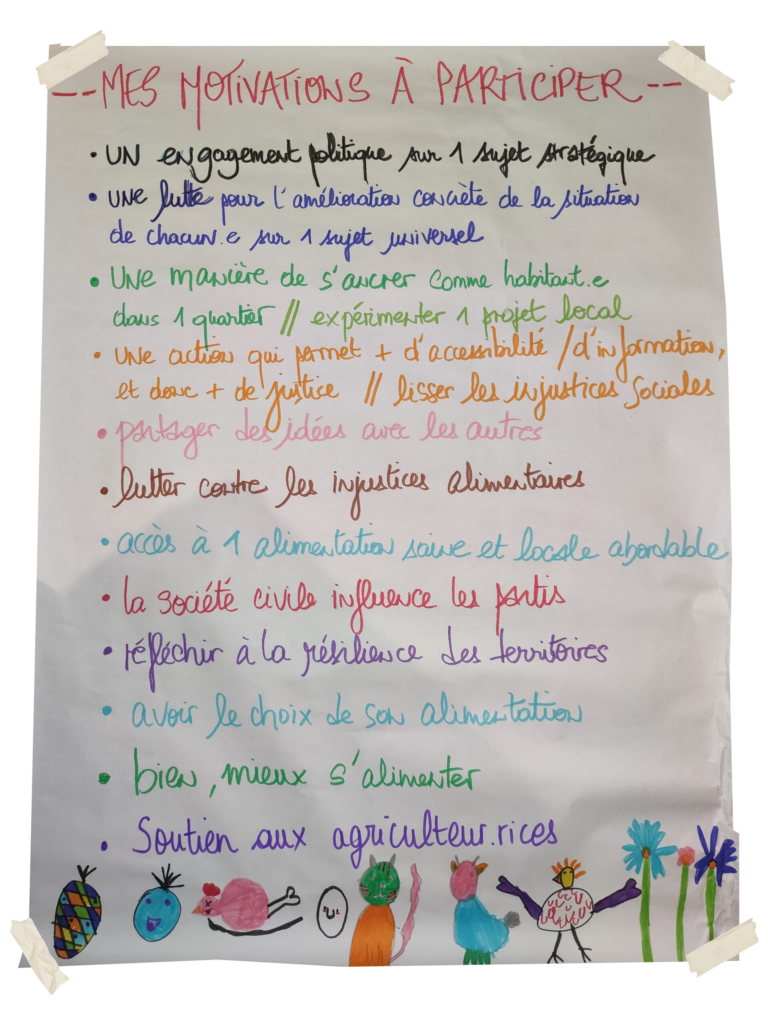 -- MES MOTIVATIONS À PARTICIPER --
• UN engagement politique sur 1 sujet stratégique
• UNE lutte pour l'amélioration concrète de la situation
de chacun.e sur 1 sujet universel
• UNE manière de s'ancrer comme habitant.e
dans 1 quartier // expérimenter 1 projet local
• UNE action qui permet + d'accessibilité / d'information,
et donc + de justice // lisser les injustices sociales
• partager des idées avec les autres
• lutter contre les injustices alimentaires
• accès à 1 alimentation saine et locale abordable
• la société civile influence les partis
• réfléchir à la résilience des territoires
• avoir le choix de son alimentation
• bien, mieux s'alimenter
• Soutien aux agriculteur.rices